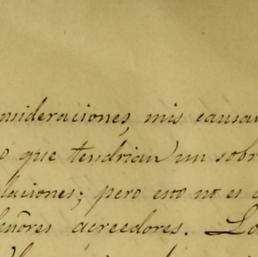 nsideraciones, mis causan
o que tendrian un sobr
laciones; pero esto no es
eñores acreedores. Lo